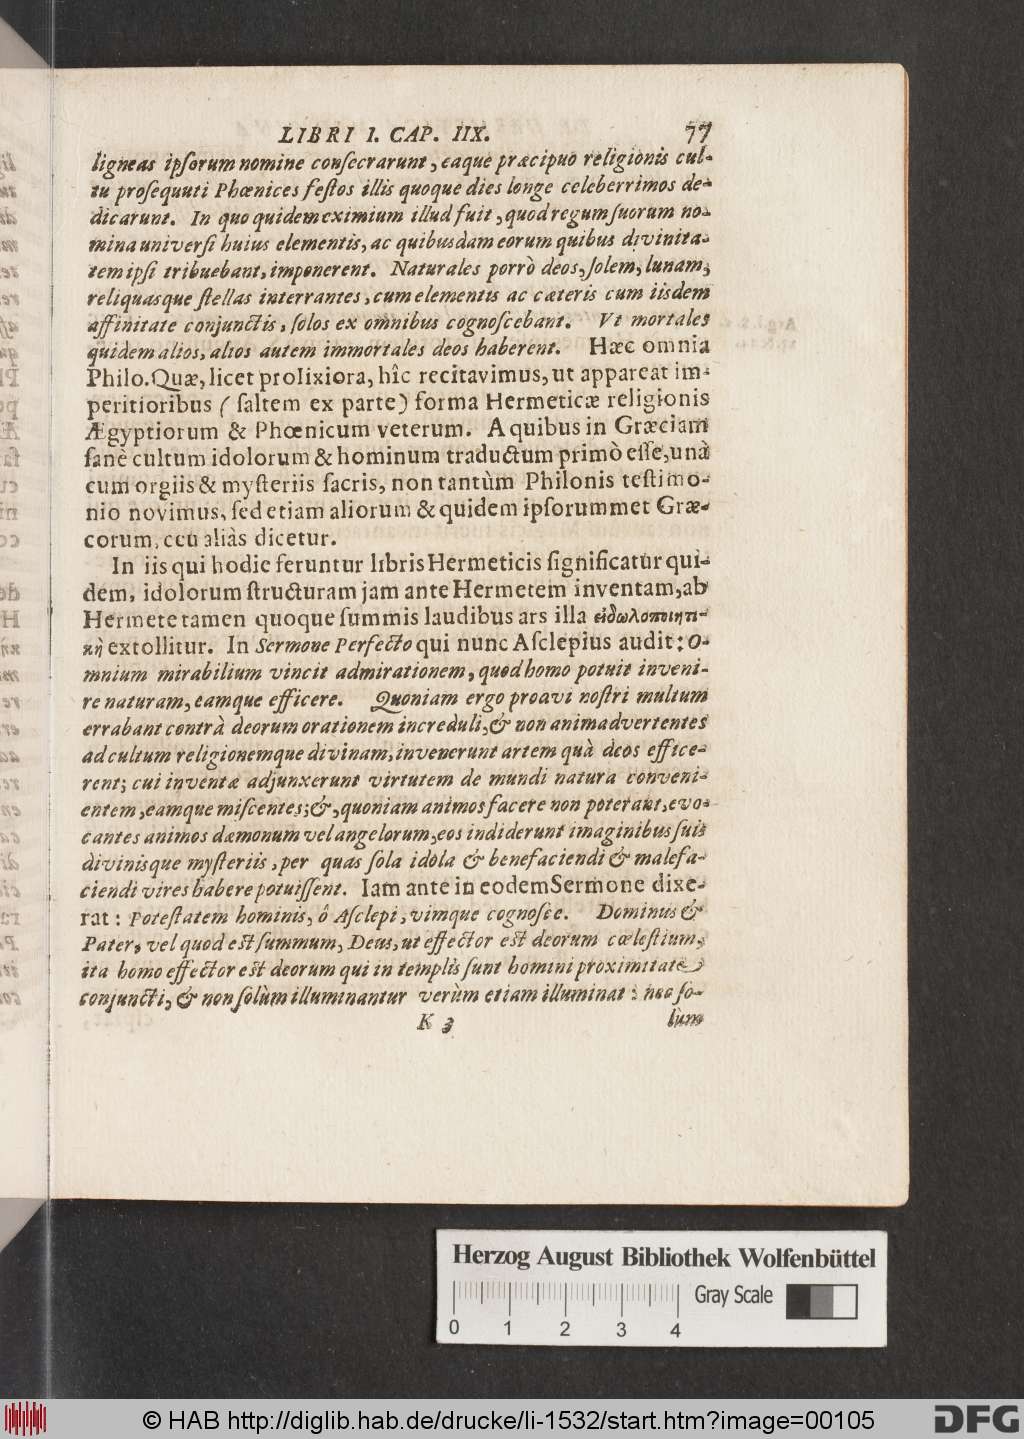 LIBRI I. CAP. IIX. 77
ligneas ipſorum nomine conſecrarunt, eaque præcipuo religionis cul-
tu proſequuti Phœnices feſtos illis quoque dies longe celeberrimos de-
dicarunt. In quo quidem eximium illud fuit, quod regum ſuorum no-
mina univerſi huius elementis, ac quibusdam eorum quibus divinita-
tem ipſi tribuebant, imponerent. Naturales porrò deos, ſolem, lunam,
reliquasque ſtellas interrantes, cum elementis ac cæteris cum iisdem
affinitate conjunctis, ſolos ex omnibus cognoſcebant. Vt mortales
quidem alios, alios autem immortales deos haberent. Hæc omnia
Philo. Quæ, licet prolixiora, hîc recitavimus, ut appareat im-
peritioribus (ſaltem ex parte) forma Hermeticæ religionis
Ægyptiorum & Phœnicum veterum. A quibus in Græciam
ſanè cultum idolorum & hominum traductum primò eſſe, unà
cum orgiis & myſteriis ſacris, non tantùm Philonis teſtimo-
nio novimus, ſed etiam aliorum & quidem ipſorummet Græ-
corum, ceu aliàs dicetur.
In iis qui hodie feruntur libris Hermeticis ſignificatur qui-
dem, idolorum ſtructuram jam ante Hermetem inventam, ab
Hermete tamen quoque ſummis laudibus ars illa εἰδωλοποιητι-
κὴ extollitur. In Sermone Perfecto qui nunc Aſclepius audit: O-
mnium mirabilium vincit admirationem, quod homo potuit inveni-
re naturam, eamque efficere. Quoniam ergo proavi noſtri multum
errabant contrà deorum orationem increduli, & non animadvertentes
ad cultum religionemque divinam, invenerunt artem quà deos effice-
rent; cui inventæ adjunxerunt virtutem de mundi natura conveni-
entem, eamque miſcentes; &, quoniam animos facere non poterant, evo-
cantes animos dæmonum vel angelorum, eos indiderunt imaginibus ſuis
divinisque myſteriis, per quas ſola idola & benefaciendi & malefa-
ciendi vires habere potuiſſent. Iam ante in eodem Sermone dixe-
rat: Poteſtatem hominis, ô Aſclepi, vimque cognoſce. Dominus &
Pater, vel quod eſt ſummum, Deus, ut effector eſt deorum cœleſtium,
ita homo effector eſt deorum qui in templis ſunt homini proximitate
conjuncti, & non ſolùm illuminantur verùm etiam illuminat: nec ſo-
K 3 lùm
Herzog August Bibliothek Wolfenbüttel
Gray Scale
0 1 2 3 4
© HAB http://diglib.hab.de/drucke/li-1532/start.htm?image=00105
DFG